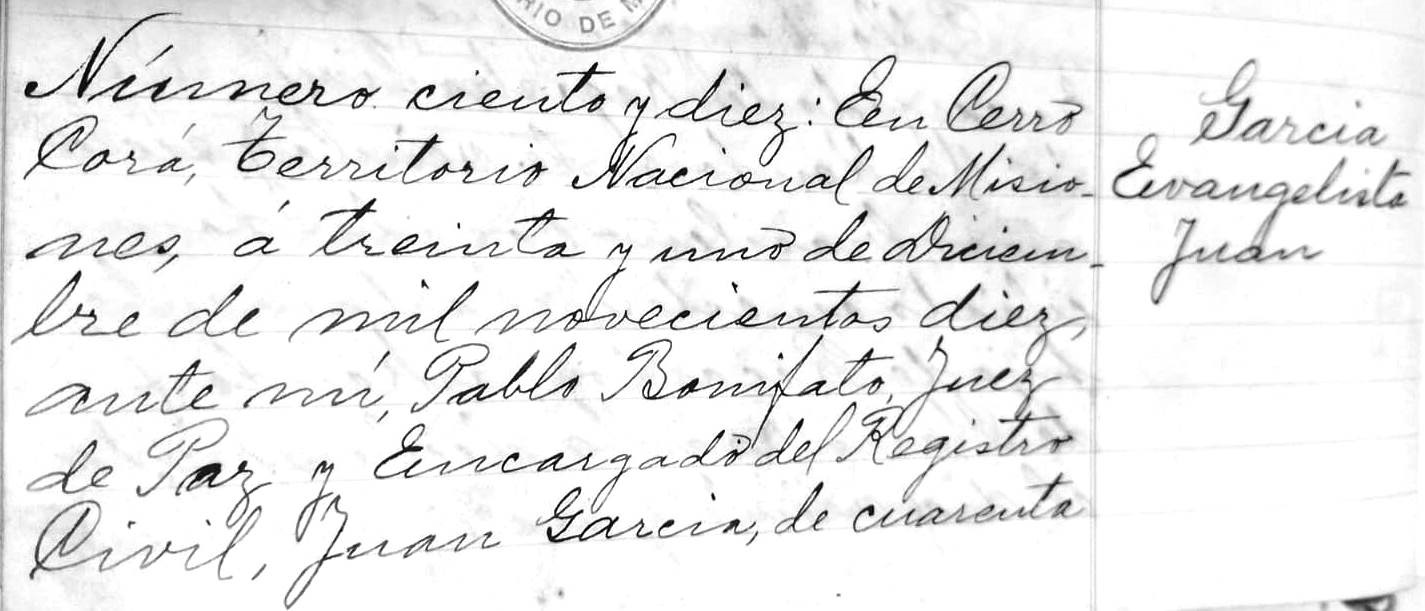 RIO DE M
Número ciento y diez: En Cerro
Corá, Territorio Nacional de Misio-
nes, á treinta y uno de Diciem-
bre de mil novecientos diez,
ante mí, Pablo Bonifato, Juez
de Paz y Encargado del Registro
Civil, Juan Garcia, de cuarenta
Garcia
Evangelista
Juan